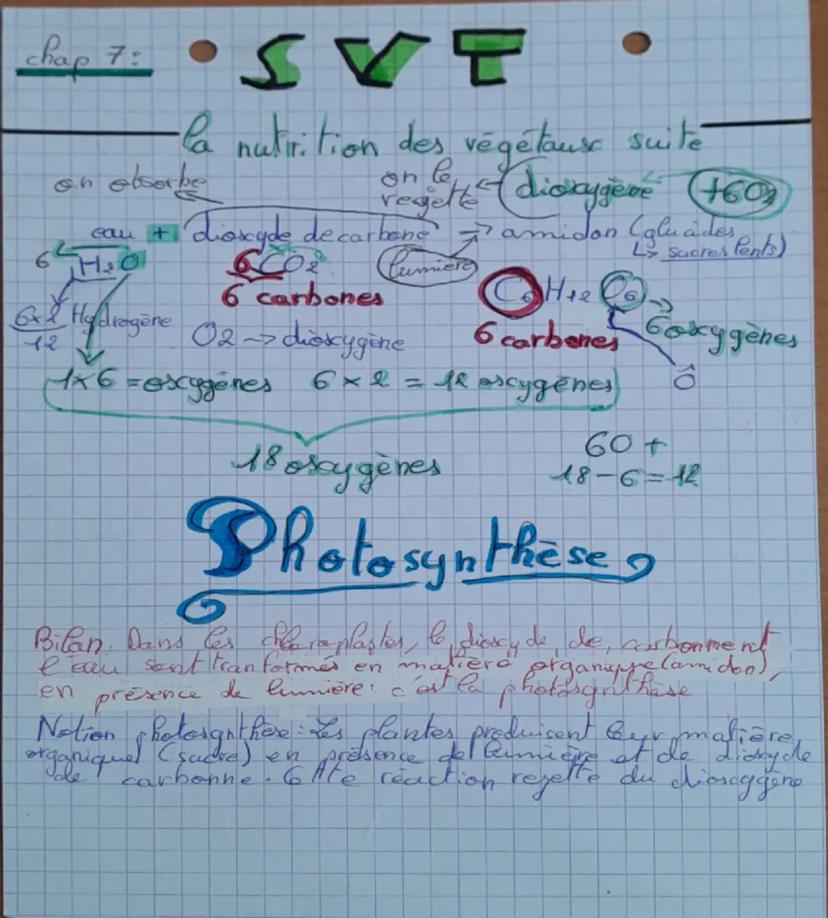 chap 7:
SVT
la nutrition des végétaux suite
on absorbe
on le rejette
dioxygène
+6O2
eau + dioxyde de carbone → amidon (glucides
↳ sucres lents)
6 H2O
6CO2
lumière
C6 H12 O6
6 carbones
6 carbones
6 oxygènes
6x2 Hydrogène
12
O2 → dioxygène
Ô
1x6 = oxygènes 6 x 2 = 12 oxygènes
18 oxygènes
6O +
18 - 6 = 12
Photosynthèse
Bilan. Dans les chloroplastes, le dioxyde de carbonne et
l'eau sont tranformés en matière organique (amidon),
en présence de lumière: c'est la photosynthèse
Notion photosynthèse: Les plantes produisent leur matière
organique (sucre) en présence de lumière et de dioxyde
de carbonne. Cette réaction rejette du dioxygène